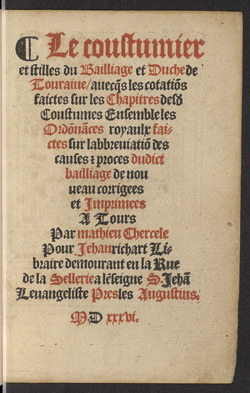 ¶ Le coustumier
et stilles du Bailliage et Duche de
Touraine / auecq̃s les cotatiõs
faictes sur les Chapitres desd̃
Coustumes Ensemble les
Ordõnãces royaulx fai-
ctes sur labbreuiatiõ des
causes ⁊ proces dudict
bailliage de nou
ueau corrigees
et Imprimees
A Tours
Par mathieu Chercele
Pour Jehan richart Li-
braire demourant en la Rue
de la Sellerie a lẽseigne S. Jehã
Leuangeliste Pres les Augustins.
M.D xxxvi.